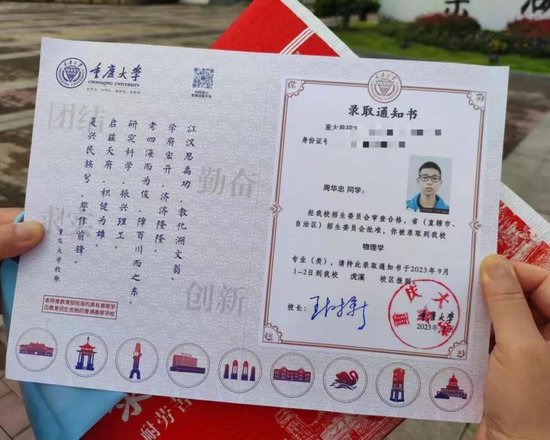 重庆大学
CHONGQING UNIVERSITY
团结
勤奋
求实
创新
江汉思禹功,教化溯文翁。
学府宏开,济济隆隆。
考四海而为俊,障百川而之东。
研究科学,振兴理工。
启兹天府,积健为雄。
复兴民族兮,誓作前锋。
重庆大学校歌
本校是教育部批准的具有高等学
历教育招生资格的普通高等学校
录取通知书
身份证号
周华忠 同学:
经我校招生委员会审查合格,省(直辖市、
自治区)招生委员会批准,你被录取到我校
物理学
专业(类),请持此录取通知书于2023年9月
1-2日到我校 虎溪 校区报到。
校长:
重庆大学
2023年
耐劳苦